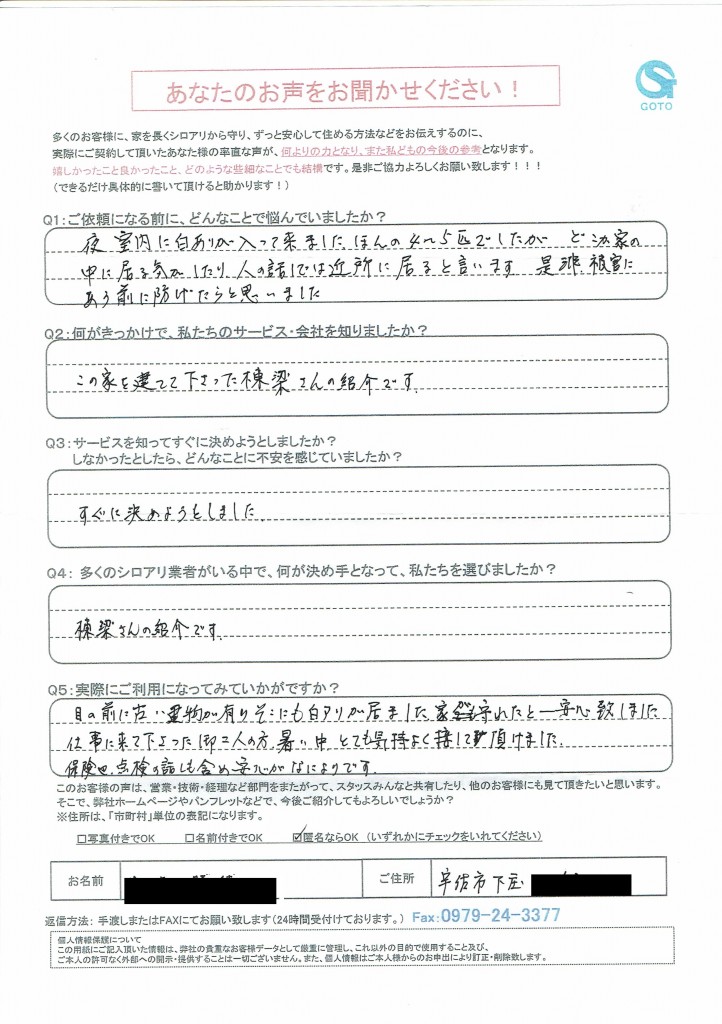 あなたのお声をお聞かせください！
GOTO
多くのお客様に、家を長くシロアリから守り、ずっと安心して住める方法などをお伝えするのに、
実際にご契約して頂いたあなた様の率直な声が、何よりの力となり、また私どもの今後の参考となります。
嬉しかったこと良かったこと、どのような些細なことでも結構です。是非ご協力よろしくお願い致します！！！
（できるだけ具体的に書いて頂けると助かります！）
Q1：ご依頼になる前に、どんなことで悩んでいましたか？
夜 室内に白ありが入って来ました ほんの4〜5匹でしたが 家の
中に居る気がしたり、人の話しでは近所に居ると言います 是非 被害に
あう前に防げたらと思いました
Q2：何がきっかけで、私たちのサービス・会社を知りましたか？
この家を建てて下さった棟梁さんの紹介です。
Q3：サービスを知ってすぐに決めようとしましたか？
しなかったとしたら、どんなことに不安を感じていましたか？
すぐに決めようとしました。
Q4： 多くのシロアリ業者がいる中で、何が決め手となって、私たちを選びましたか？
棟梁さんの紹介です。
Q5：実際にご利用になってみていかがですか？
目の前に古い建物が有りそこにも白アリが居ました 家守れたと一安心致しました
仕事に来て下さった御二人の方 暑い中 とても気持よく接して頂けました。
保険や点検の話しも含め安心がなによりです。
このお客様の声は、営業・技術・経理など部門をまたがって、スタッスみんなと共有したり、他のお客様にも見て頂きたいと思います。
そこで、弊社ホームページやパンフレットなどで、今後ご紹介してもよろしいでしょうか？
※住所は、「市町村」単位の表記になります。
□写真付きでOK □名前付きでOK ☑匿名ならOK （いずれかにチェックをいれてください）
お名前 ご住所 宇佐市下庄
返信方法： 手渡しまたはFAXにてお願い致します（24時間受付けております。） Fax：0979-24-3377
個人情報保護について
この用紙にご記入頂いた情報は、弊社の貴重なお客様データとして厳重に管理し、これ以外の目的で使用すること及び、
ご本人の許可なく外部への開示・提供することは一切ございません。また、個人情報はご本人様からのお申出により訂正・削除致します。